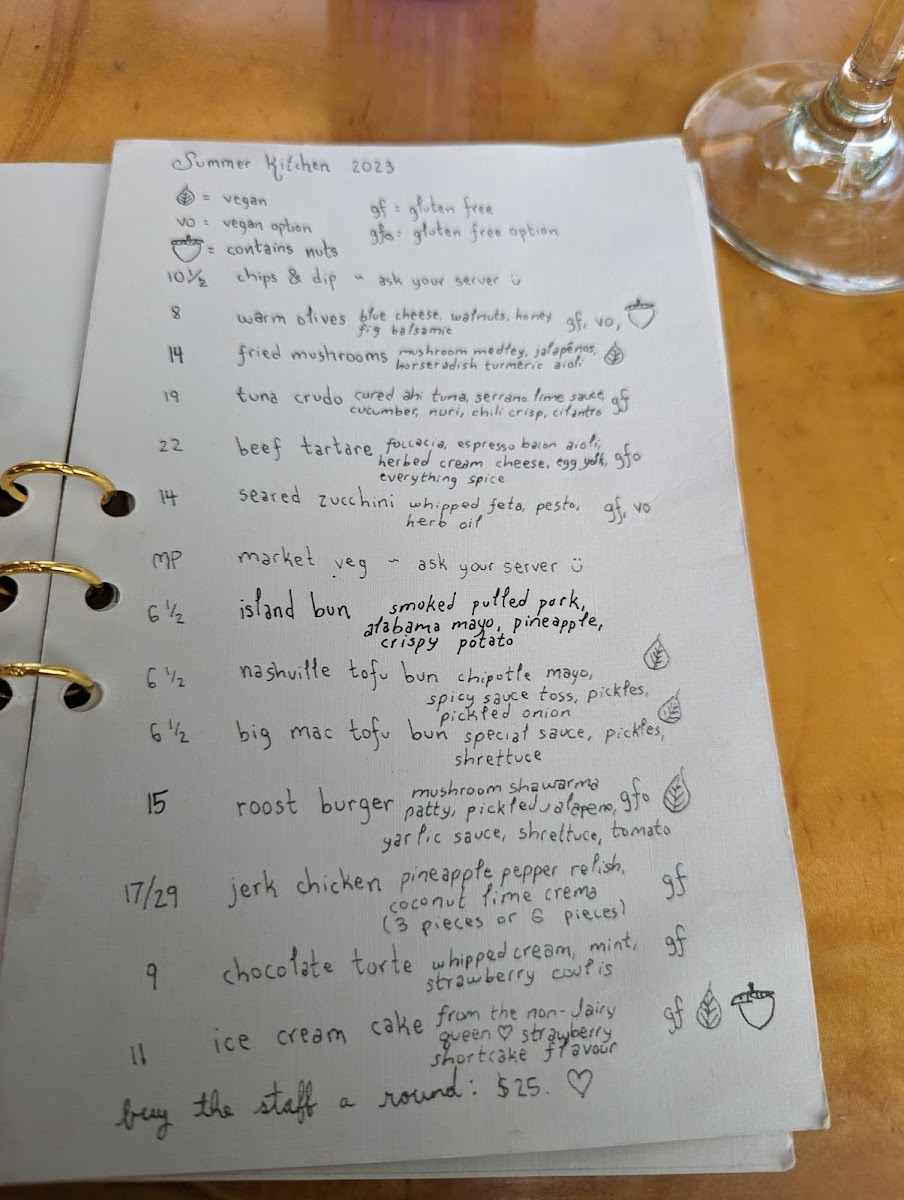 Summer Kitchen 2023
= vegan
gf = gluten free
vo = vegan option
gfo = gluten free option
= contains nuts
10 1/2 chips & dip ~ ask your server ü
8 warm olives blue cheese, walnuts, honey gf, vo,
fig balsamic
14 fried mushrooms mushroom medley, jalapeños,
horseradish turmeric aioli
19 tuna crudo cured ahi tuna, serrano lime sauce, gf
cucumber, nori, chili crisp, cilantro
22 beef tartare foccacia, espresso bacon aioli,
herbed cream cheese, egg yolk, gfo
everything spice
14 seared zucchini whipped feta, pesto, gf, vo
herb oil
MP market veg ~ ask your server ü
6 1/2 island bun smoked pulled pork,
alabama mayo, pineapple,
crispy potato
6 1/2 nashville tofu bun chipotle mayo,
spicy sauce toss, pickles,
pickled onion
6 1/2 big mac tofu bun special sauce, pickles,
shrettuce
15 roost burger mushroom shawarma
patty, pickled jalapeno, gfo
garlic sauce, shrettuce, tomato
17/29 jerk chicken pineapple pepper relish, gf
coconut lime crema
(3 pieces or 6 pieces)
9 chocolate torte whipped cream, mint, gf
strawberry coulis
11 ice cream cake from the non-dairy gf
queen ♡ strawberry
shortcake flavour
buy the staff a round: $25. ♡